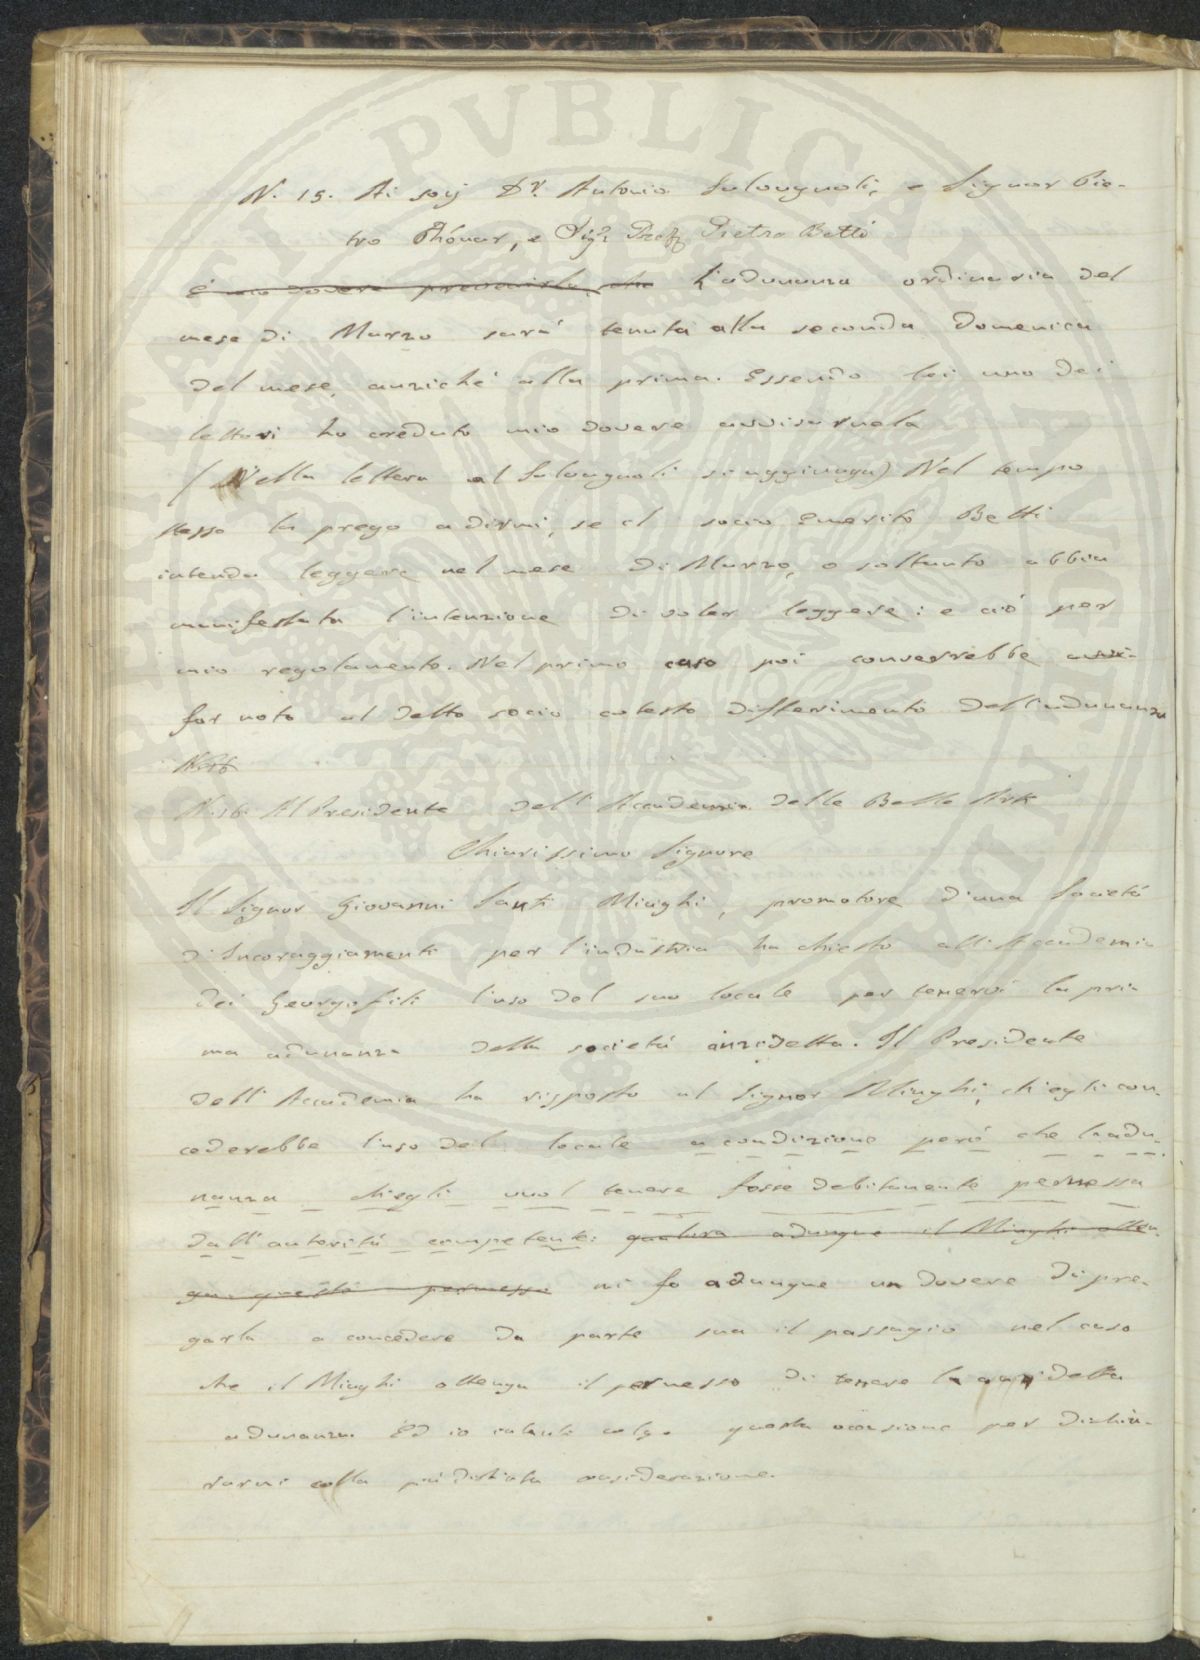 N. 15. Ai socj Dr. Antonio Salvagnoli, e Signor Pie-
tro Thóuar, e Sigr. Prof Pietro Betti
É mio dovere prevenirla, che L'adunanza ordinaria del
mese di Marzo sará tenuta alla seconda Domenica
del mese, anziché alla prima. Essendo lei uno dei
lettori ho creduto mio dovere avvisarnela
(Nella lettera al Salvagnoli si aggiunga) Nel tempo
stesso la prego a dirmi, se il socio Emerito Betti
intenda leggere nel mese di Marzo, o soltanto abbia
manifestata l'intenzione di voler leggere: e ció per
mio regolamento. Nel primo caso poi converrebbe avvi-
far noto al detto socio cotesto differimento dell'adunanza
N. 16
N. 16. Al Presidente dell' Accademia delle Belle Arti
Chiarissimo Signore
Il Signor Giovanni Santi Minghi, promotore d'una Societá
d'Incoraggiamenti per l'industria ha chiesto all'Accademia
dei Georgofili l'uso del suo locale per tenervi la pri-
ma adunanza della societá anzidetta. Il Presidente
dell' Accademia ha risposto al Signor Minghi, ch'egli con-
cederebbe l'uso del locale a condizione peró che l'adu-
nanza ch'egli vuol tenere fosse debitamente permessa
dall' autoritá competente: qualora adunque il Minghi otten-
ga questo permesso mi fo adunque un dovere di pre-
garla a concedere da parte sua il passagio nel caso
che il Minghi ottenga il permesso di tenere la anzidetta
adunanza. Ed io intanto colgo questa occasione per dichia-
rarmi colla piú distinta considerazione.
PVBLICAE